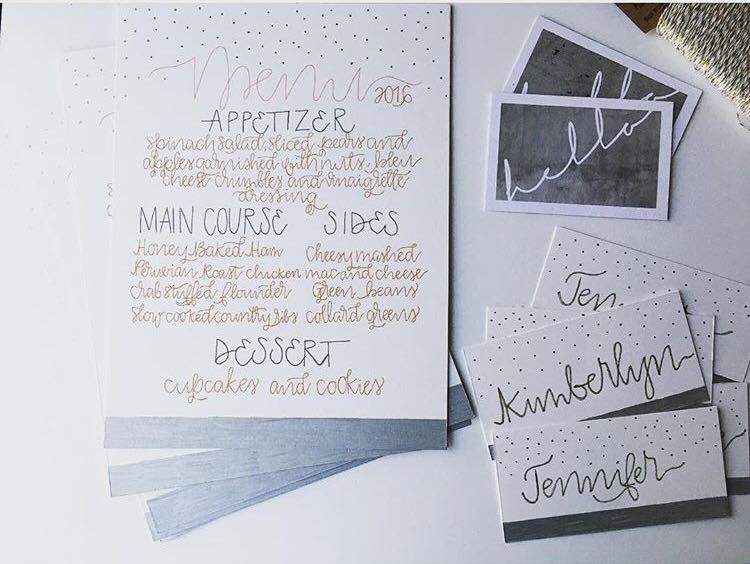 menu
2016
APPETIZER
spinach salad, sliced pears and
apples garnished with nuts, bleu
cheese crumbles and vinaigrette
dressing
MAIN COURSE
Honey Baked Ham
Peruvian Roast chicken
crab stuffed flounder
slow cooked country ribs
SIDES
Cheesy mashed
mac and cheese
Green beans
collard greens
DESSERT
cupcakes and cookies
hello
hello
Jen
Kimberlyn
Jennifer